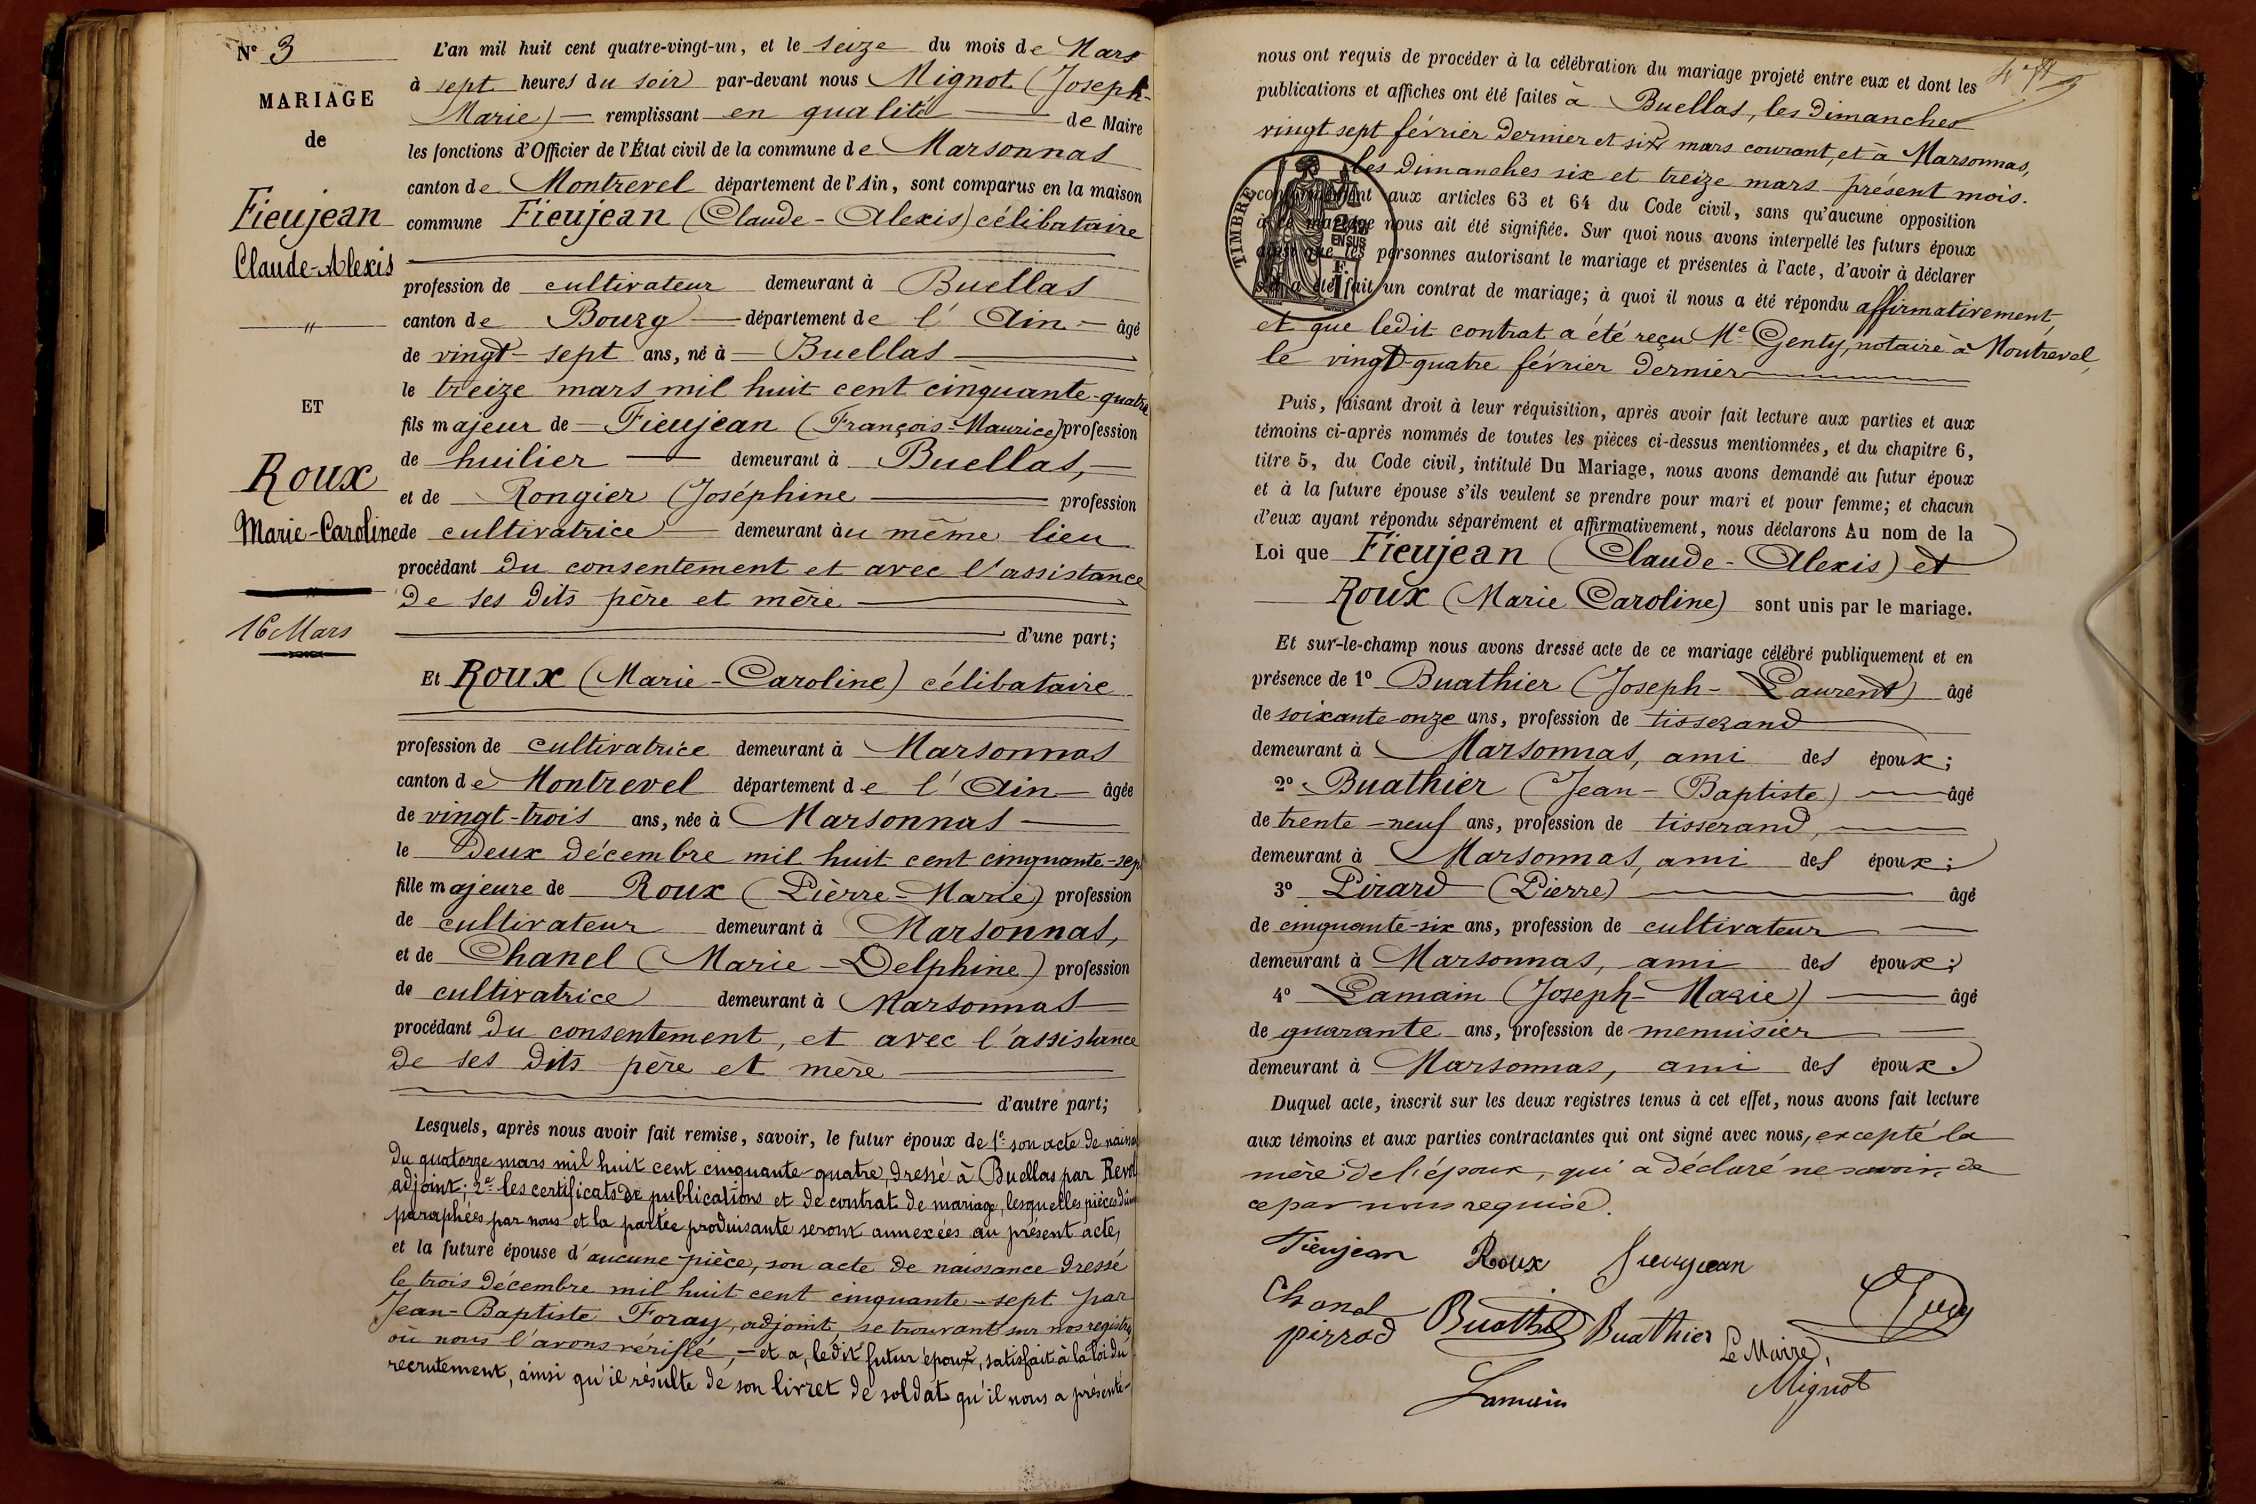 N° 3
MARIAGE
de
Fieujean
Claude-Alexis
"
ET
Roux
Marie-Caroline
"
16 Mars
L'an mil huit cent quatre-vingt-un, et le seize du mois de Mars
à sept heures du soir par-devant nous Mignot (Joseph-
Marie) — remplissant en qualité — de Maire
les fonctions d'Officier de l'État civil de la commune de Marsonnas
canton de Montrevel département de l'Ain, sont comparus en la maison
commune Fieujean (Claude-Alexis) célibataire
profession de cultivateur demeurant à Buellas
canton de Bourg — département de l'Ain — âgé
de vingt-sept ans, né à — Buellas —
le treize mars mil huit cent cinquante-quatre
fils majeur de — Fieujean (François-Maurice) profession
de huilier — demeurant à Buellas, —
et de Rongier (Joséphine — profession
de cultivatrice — demeurant àu même lieu
procédant du consentement et avec l'assistance
de ses dits père et mère —
— d'une part;
Et Roux (Marie-Caroline) célibataire
profession de cultivatrice demeurant à Marsonnas
canton de Montrevel département de l'Ain — âgée
de vingt-trois ans, née à Marsonnas —
le deux décembre mil huit cent cinquante-sep
fille majeure de Roux (Pierre-Marie) profession
de cultivateur demeurant à Marsonnas,
et de Chanel (Marie-Delphine) profession
de cultivatrice demeurant à Marsonnas
procédant du consentement, et avec l'assistance
de ses dits père et mère —
— d'autre part;
Lesquels, après nous avoir fait remise, savoir, le futur époux de 1° son acte de naissa
du quatorze mars mil huit cent cinquante-quatre, dressé à Buellas par Revol
adjoint; 2° les certificats de publications et de contrat de mariage, lesquelles pièces dûm
paraphées par nous et la partie produisante seront annexées au présent acte,
et la future épouse d'aucune pièce, son acte de naissance dressé
le trois décembre mil huit cent cinquante-sept par
Jean-Baptiste Foray, adjoint se trouvant sur nos registres
où nous l'avons vérifié, — et a, ledit futur époux, satisfait à la loi du
recrutement, ainsi qu'il résulte de son livret de soldat qu'il nous a présenté-
nous ont requis de procéder à la célébration du mariage projeté entre eux et dont les
publications et affiches ont été faites à Buellas, les dimanches
vingt sept février dernier et six mars courant, et à Marsonnas,
les dimanches six et treize mars présent mois.
conformément aux articles 63 et 64 du Code civil, sans qu'aucune opposition
à ce mariage nous ait été signifiée. Sur quoi nous avons interpellé les futurs époux
ainsi que les personnes autorisant le mariage et présentes à l'acte, d'avoir à déclarer
s'il a été fait un contrat de mariage; à quoi il nous a été répondu affirmativement,
et que ledit contrat a été reçu Me Genty, notaire à Montrevel,
le vingt-quatre février dernier —
TIMBRE
EN SUS
Puis, faisant droit à leur réquisition, après avoir fait lecture aux parties et aux
témoins ci-après nommés de toutes les pièces ci-dessus mentionnées, et du chapitre 6,
titre 5, du Code civil, intitulé Du Mariage, nous avons demandé au futur époux
et à la future épouse s'ils veulent se prendre pour mari et pour femme; et chacun
d'eux ayant répondu séparément et affirmativement, nous déclarons Au nom de la
Loi que Fieujean (Claude-Alexis) et
Roux (Marie Caroline) sont unis par le mariage.
Et sur-le-champ nous avons dressé acte de ce mariage célébré publiquement et en
présence de 1° Buathier (Joseph-Laurent) âgé
de soixante-onze ans, profession de tisserand
demeurant à Marsonnas, ami des époux;
2° Buathier (Jean-Baptiste) — âgé
de trente-neuf ans, profession de tisserand, —
demeurant à Marsonnas, ami des époux;
3° Pirard (Pierre) — âgé
de cinquante-six ans, profession de cultivateur —
demeurant à Marsonnas, ami des époux;
4° Lamain (Joseph-Marie) — âgé
de quarante ans, profession de menuisier —
demeurant à Marsonnas, ami des époux.
Duquel acte, inscrit sur les deux registres tenus à cet effet, nous avons fait lecture
aux témoins et aux parties contractantes qui ont signé avec nous, excepté la
mère de l'époux, qui a déclaré ne savoir, de
ce par nous requise.
Fieujean Roux Fieugean
Chanel
pirrad Buathier Buathier
Le Maire,
Mignot
Lamain